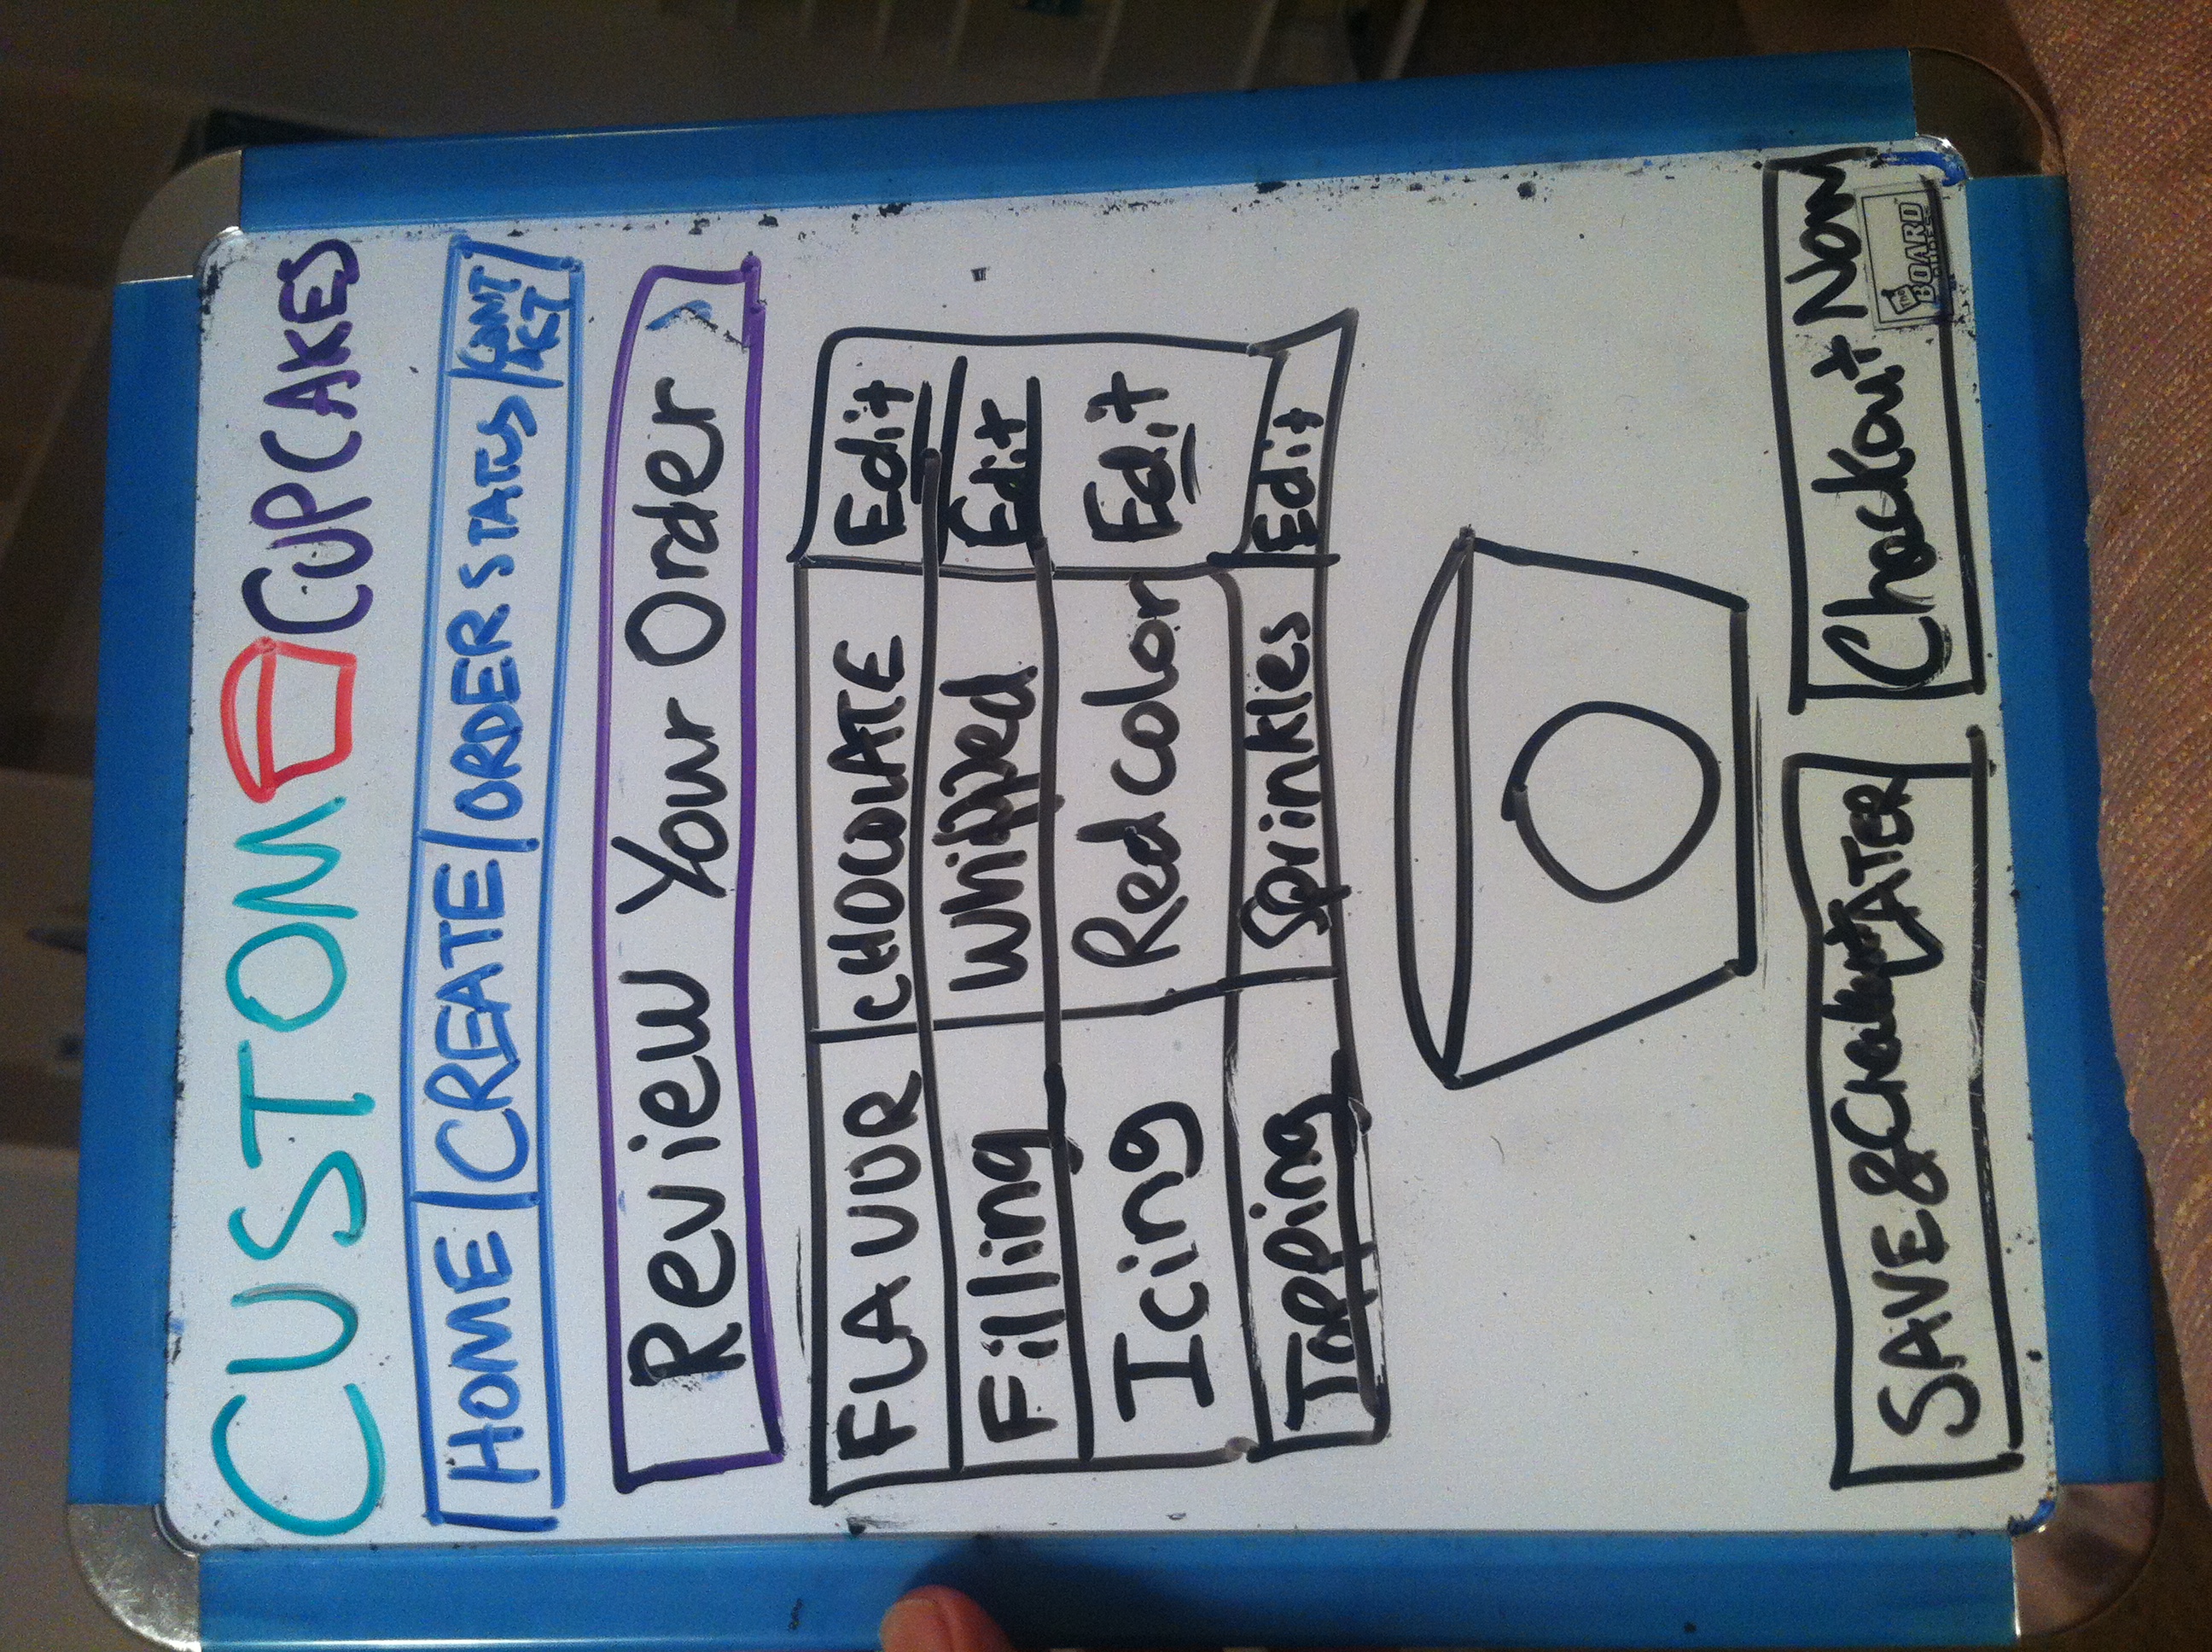 CUSTOM CUPCAKES
HOME CREATE ORDER STATUS CONT
ACT
Review Your Order
FLAVOR CHOCOLATE Edit
Filling Whipped Edit
Icing Red color Edit
Topping Sprinkles Edit
SAVE & Checkout LATER
Checkout Now
The
BOARD
DUDES